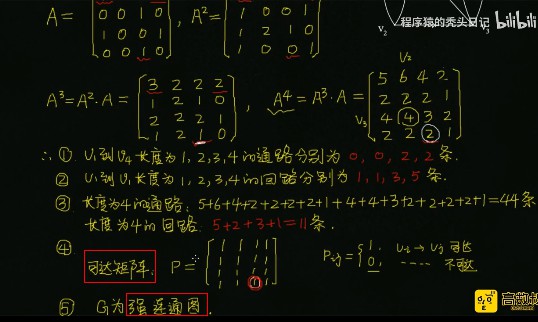 程序猿的秃头日记 bilibili
V₂ V₃
A = [ 0 0 1 0
1 0 0 1
0 0 1 0 ] , A² = [ 1 0 0 1
1 2 1 0
1 0 0 1 ]
A³ = A²·A = [ 3 2 2 2
1 2 1 0
2 2 2 1
1 2 1 0 ] , A⁴ = A³·A = [ 5 6 4 2
2 2 2 1
4 4 3 2
2 2 2 1 ]
V₂
V₃
∴ ① V₁到V₄长度为1,2,3,4的通路分别为 0, 0, 2, 2 条.
② V₁到V₁长度为1,2,3,4的回路分别为 1, 1, 3, 5 条.
③ 长度为4的通路: 5+6+4+2+2+2+2+1+4+4+3+2+2+2+2+1=44条
长度为4的回路. 5+2+3+1=11条.
④
可达矩阵. P= [ 1 1 1 1
1 1 1 1
1 1 1 1
1 1 1 1 ] Pij = { 1, Vi→Vj 可达
0, ---- 不可达
⑤ G为强连通图.
高数叔